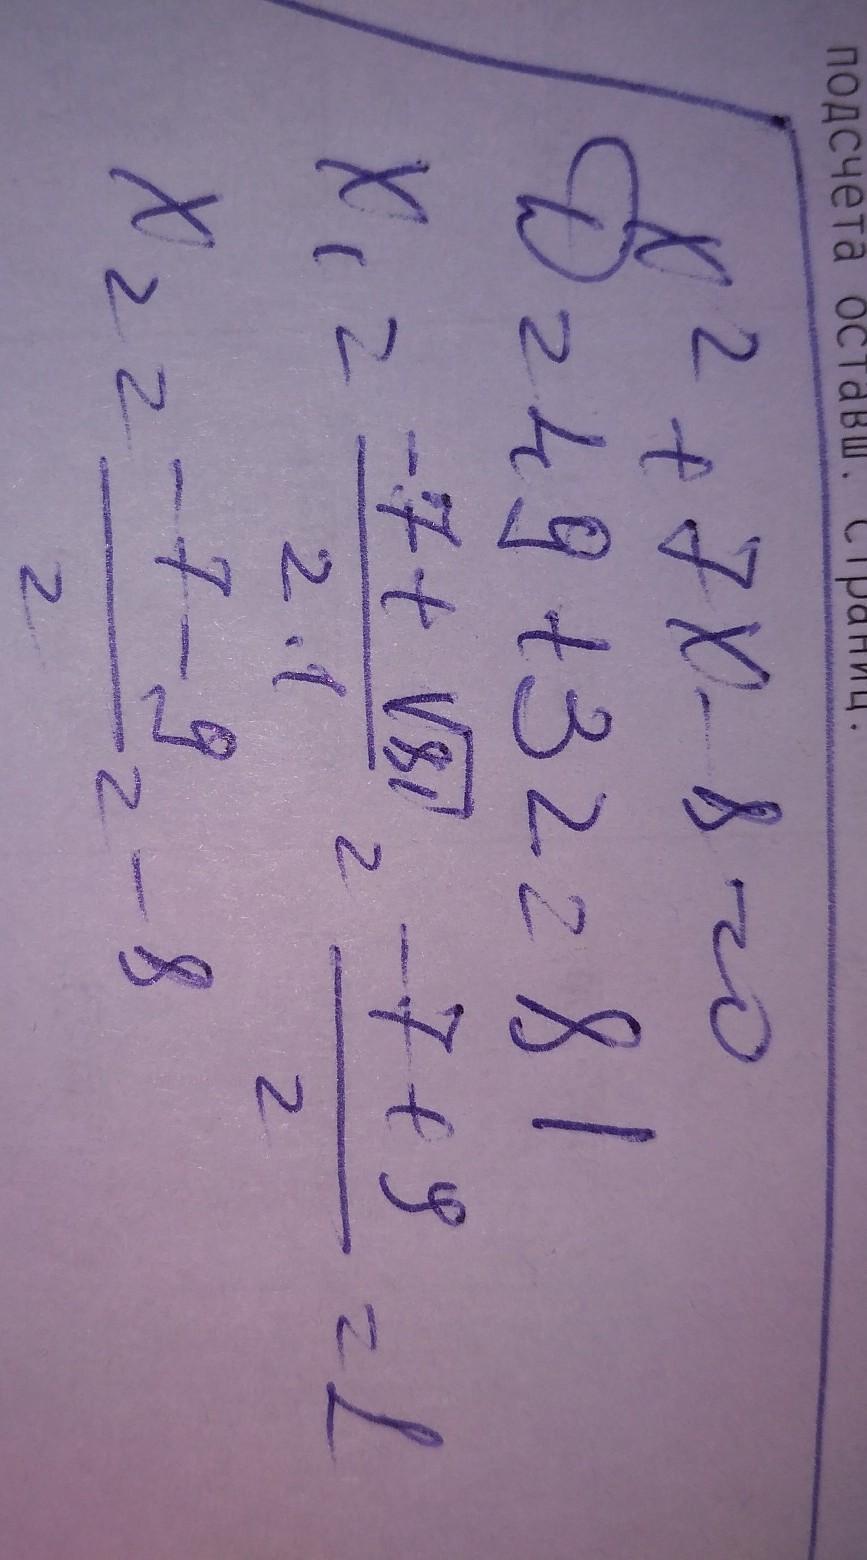 подсчета оставш. страниц.
x² + 7x - 8 = 0
D = 49 + 32 = 81
x₁ = (-7 + √81)/(2·1) = (-7 + 9)/2 = 1
x₂ = (-7 - 9)/2 = -8